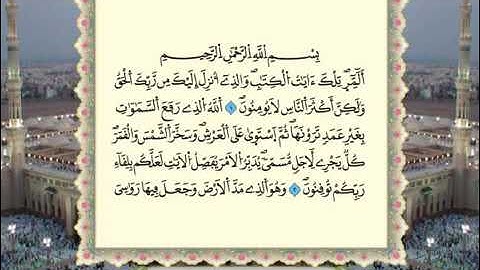 بِسْمِ اللَّهِ الرَّحْمَٰنِ الرَّحِيمِ
أَلَٓمِّٓرۖ تِلْكَ ءَايَٰتُ اُ۬لْكِتَٰبِۖ وَالذِےٓ أُنزِلَ إِلَيْكَ مِن رَّبِّكَ اَ۬لْحَقُّ
وَلَٰكِنَّ أَكْثَرَ اَ۬لنَّاسِ لَا يُومِنُونَۖ ١ اَ۬للَّهُ اُ۬لذِے رَفَعَ اَ۬لسَّمَٰوَٰتِ
بِغَيْرِ عَمَدٖ تَرَوْنَهَاۖ ثُمَّ اَ۪سْتَوَىٰ عَلَى اَ۬لْعَرْشِۖ وَسَخَّرَ اَ۬لشَّمْسَ وَالْقَمَرَۖ
كُلّٞ يَجْرِے لِأَجَلٖ مُّسَمّٗىۖ يُدَبِّرُ اُ۬لْأَمْرَ يُفَصِّلُ اُ۬لْأٓيَٰتِ لَعَلَّكُم بِلِقَآءِ
رَبِّكُمْ تُوقِنُونَۖ ٢ وَهُوَ اَ۬لذِے مَدَّ اَ۬لْأَرْضَ وَجَعَلَ فِيهَا رَوَٰسِيَ